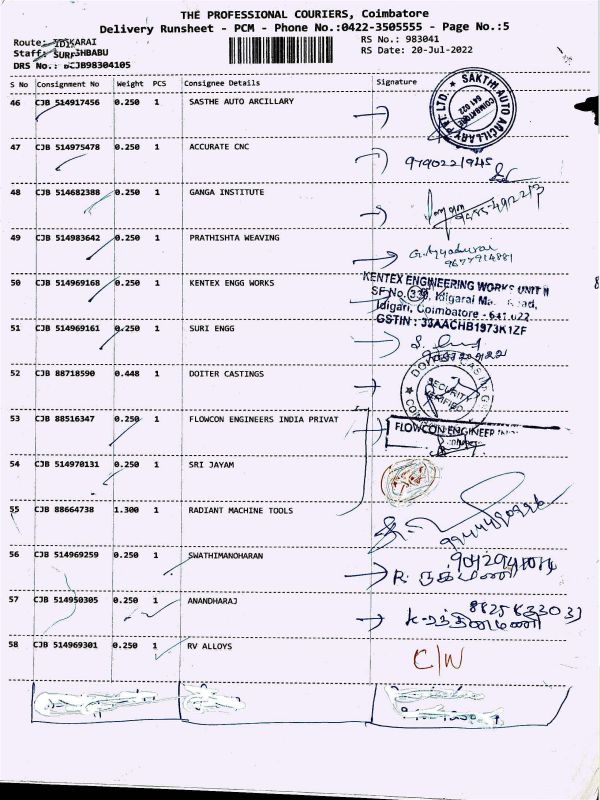 THE PROFESSIONAL COURIERS, Coimbatore
Delivery Runsheet - PCM - Phone No.:0422-3505555 - Page No.:5
Route:
RS No.: 983041
Staff:
RS Date: 20-Jul-2022
DRS No.: BCJB98304105
S No Consignment No Weight PCS Consignee Details Signature
46 CJB 514917456 0.250 1 SASTHE AUTO ARCILLARY
SAKTHI AUTO ARCILLARY PVT. LTD.
COIMBATORE 641 022
47 CJB 514975478 0.250 1 ACCURATE CNC
9790221945
48 CJB 514682388 0.250 1 GANGA INSTITUTE
49 CJB 514983642 0.250 1 PRATHISHTA WEAVING
9677914881
50 CJB 514969168 0.250 1 KENTEX ENGG WORKS
KENTEX ENGINEERING WORKS UNIT II
SF No. 330, Idigarai Main Road,
Idigari, Coimbatore - 641 022
GSTIN : 33AACHB1973K1ZF
51 CJB 514969161 0.250 1 SURI ENGG
52 CJB 88718590 0.448 1 DOITER CASTINGS
SECURITY VERIFIED
53 CJB 88516347 0.250 1 FLOWCON ENGINEERS INDIA PRIVAT
FLOWCON ENGINEER
54 CJB 514970131 0.250 1 SRI JAYAM
55 CJB 88664738 1.300 1 RADIANT MACHINE TOOLS
56 CJB 514969259 0.250 1 SWATHIMANOHARAN
57 CJB 514950305 0.250 1 ANANDHARAJ
8825633033
K-ரத்தினமணி
58 CJB 514969301 0.250 1 RV ALLOYS
C/W